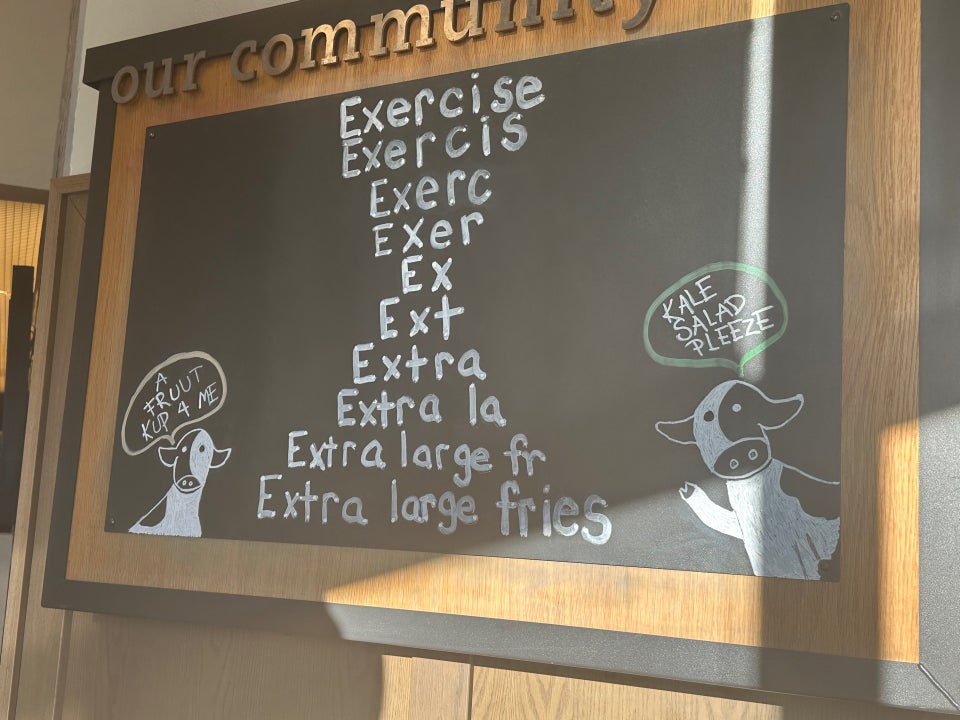 our community
Exercise
Exercis
Exerc
Exer
Ex
Ext
Extra
Extra la
Extra large fr
Extra large fries
A
FRUUT
KUP 4 ME
KALE
SALAD
PLEEZE